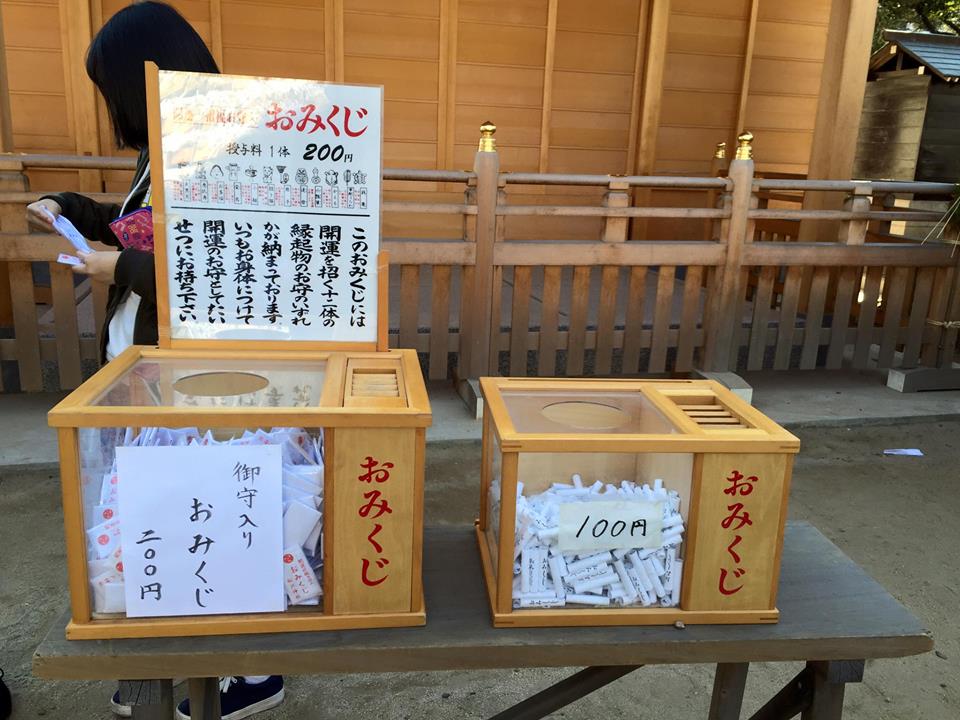 おみくじ
授与料 1体 200円
このおみくじには
開運を招く十二体の
縁起物のお守のいずれ
かが納まっております
いつもお身体につけて
開運のお守としてたい
せつにお持ち下さい
御守入り
おみくじ
二〇〇円
おみくじ
100円
おみくじ